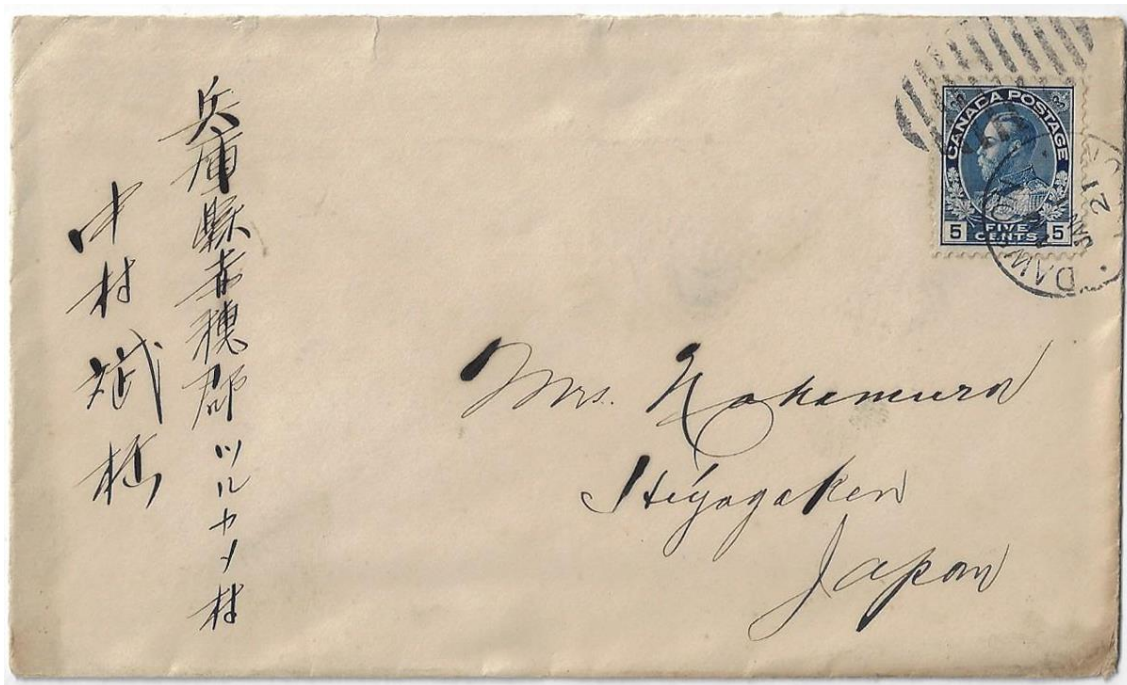 兵庫縣赤穂郡ツルカメ村
中村斌様
CANADA POSTAGE
5 FIVE CENTS 5
DAWSON
JAN
21
Mrs. Nakamura
Hiyogaken
Japan